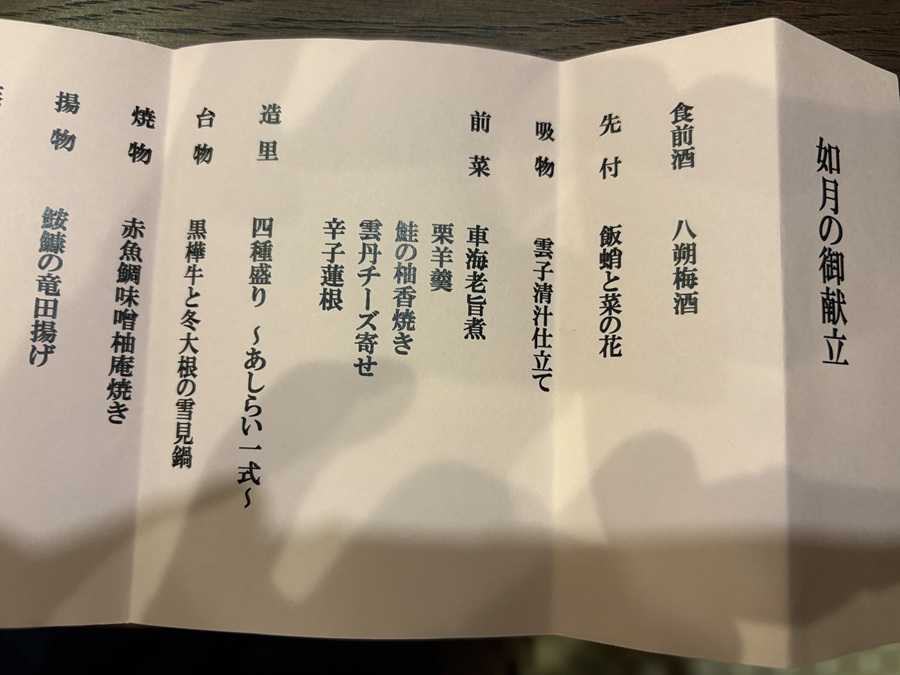 如月の御献立
食前酒　八朔梅酒
先付　飯蛸と菜の花
吸物　雲子清汁仕立て
前菜　車海老旨煮
栗羊羹
鮭の柚香焼き
雲丹チーズ寄せ
辛子蓮根
造里　四種盛り　～あしらい一式～
台物　黒樺牛と冬大根の雪見鍋
焼物　赤魚鯛味噌柚庵焼き
揚物　鮟鱇の竜田揚げ